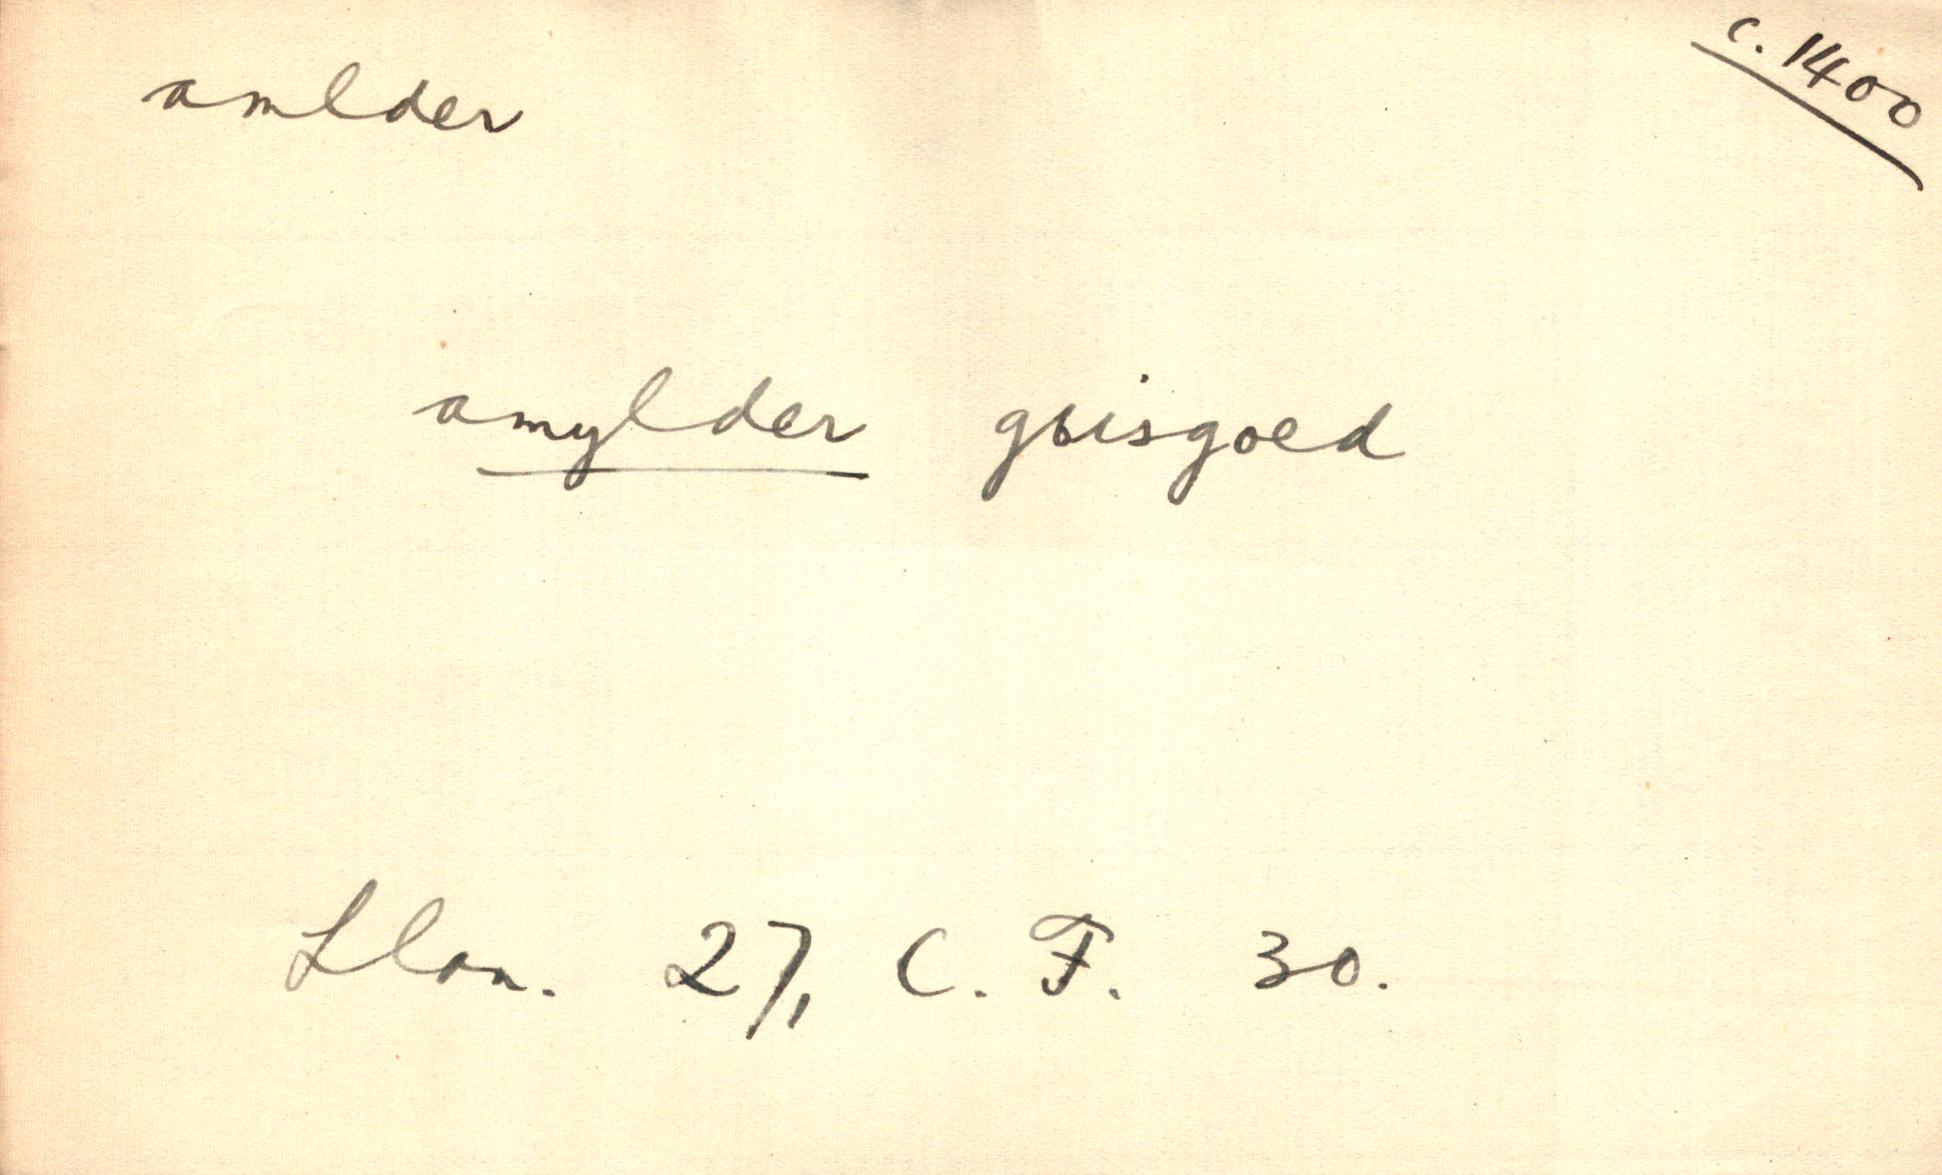 amlder
c. 1400
amylder gỽisgoed
Llan. 27, C. F. 30.